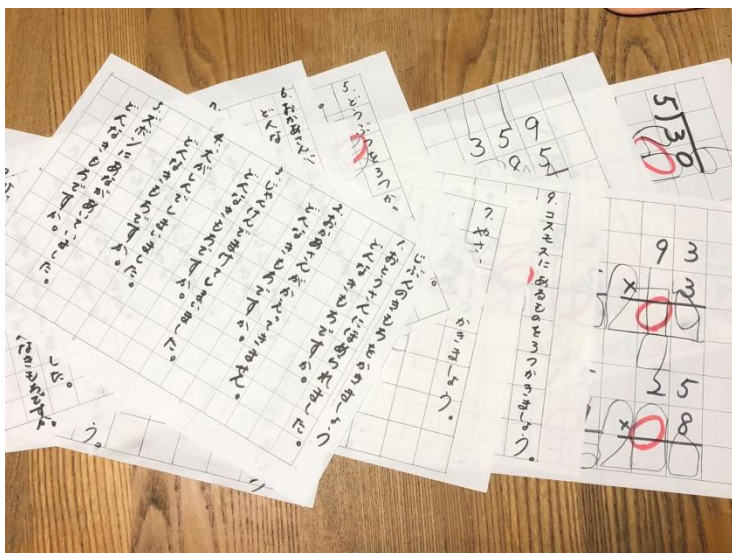 じぶんのきもちをかきましょう
1. おとうさんにほめられました。
どんなきもちですか。
2. おかあさんがかえってきません。
どんなきもちですか。
3. じゃんけんでまけてしまいました。
どんなきもちですか。
4. 犬がしんでしまいました。
どんなきもちですか。
5. ズボンにあながあいていました。
どんなきもちですか。
6. おかあさんに
どんな
5. どうぶつを3つか。
359
85
7. やさい
かきましょう。
9. コスモスにあるものを3つかきましょう。
5)30
93
× 3
25
× 8
した。
なきもちですか。
う。